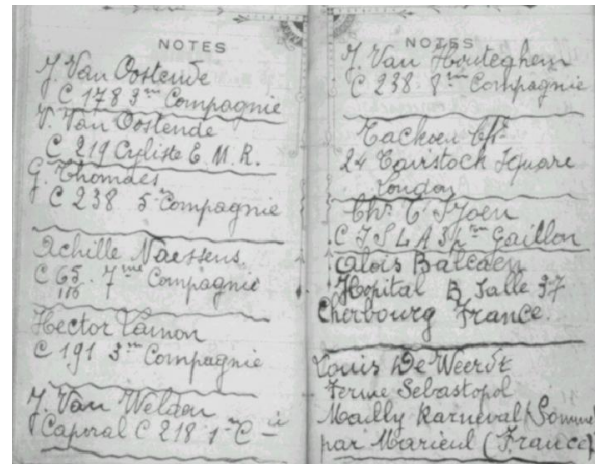 NOTES
J. Van Oostende
C 178 3me Compagnie
V. Van Oostende
C 219 Cycliste E. M. R.
G. Thomaes
C 238 5e Compagnie
Achille Naessens
C 65 7me Compagnie
116
Hector Lamon
C 191 3me Compagnie
J. Van Welden
Caporal C 218 1re Cie
NOTES
J. Van Houteghem
C 238 8me Compagnie
24 Tavistock Square
London
Gaillon
Aloïs Balcaen
Hopital B Salle 37
Cherbourg France.
Louis De Weerdt
Ferme Sebastopol
Mailly Raineval (Somme
par Marieul (France)